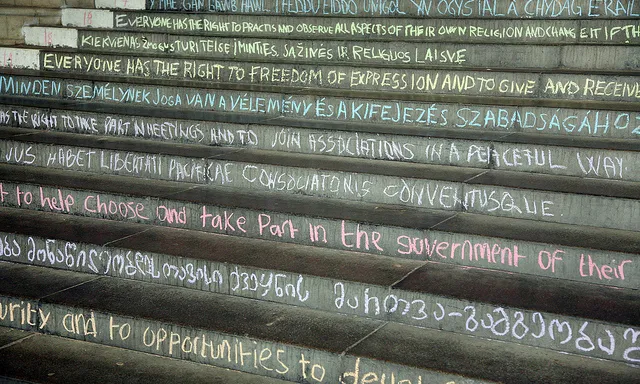 HAWL I FEDDU EIDDO UNIGOL YN OGYSTAL Â CHYDAG ERAILL
18 EVERYONE HAS THE RIGHT TO PRACTIS AND OBSERVE ALL ASPECTS OF THEIR OWN RELIGION AND CHANGE IT IF TH
18 KIEKVIENAS ŽMOGUS TURI TEISĘ Į MINTIES, SĄŽINĖS IR RELIGIJOS LAISVĘ
EVERYONE HAS THE RIGHT TO FREEDOM OF EXPRESSION AND TO GIVE AND RECEIVE
MINDEN SZEMÉLYNEK JOGA VAN A VÉLEMÉNY ÉS A KIFEJEZÉS SZABADSÁGÁHOZ
HAS THE RIGHT TO TAKE PART IN MEETINGS AND TO JOIN ASSOCIATIONS IN A PEACEFUL WAY
IUS HABET LIBERTATI PACIFICAE CONSOCIATIONIS CONVENTUSQUE.
t to help choose and take part in the government of their
მონაწილეობდეს თავისი ქვეყნის მართვა-გამგეობაშ
urity and to opportunities to devel